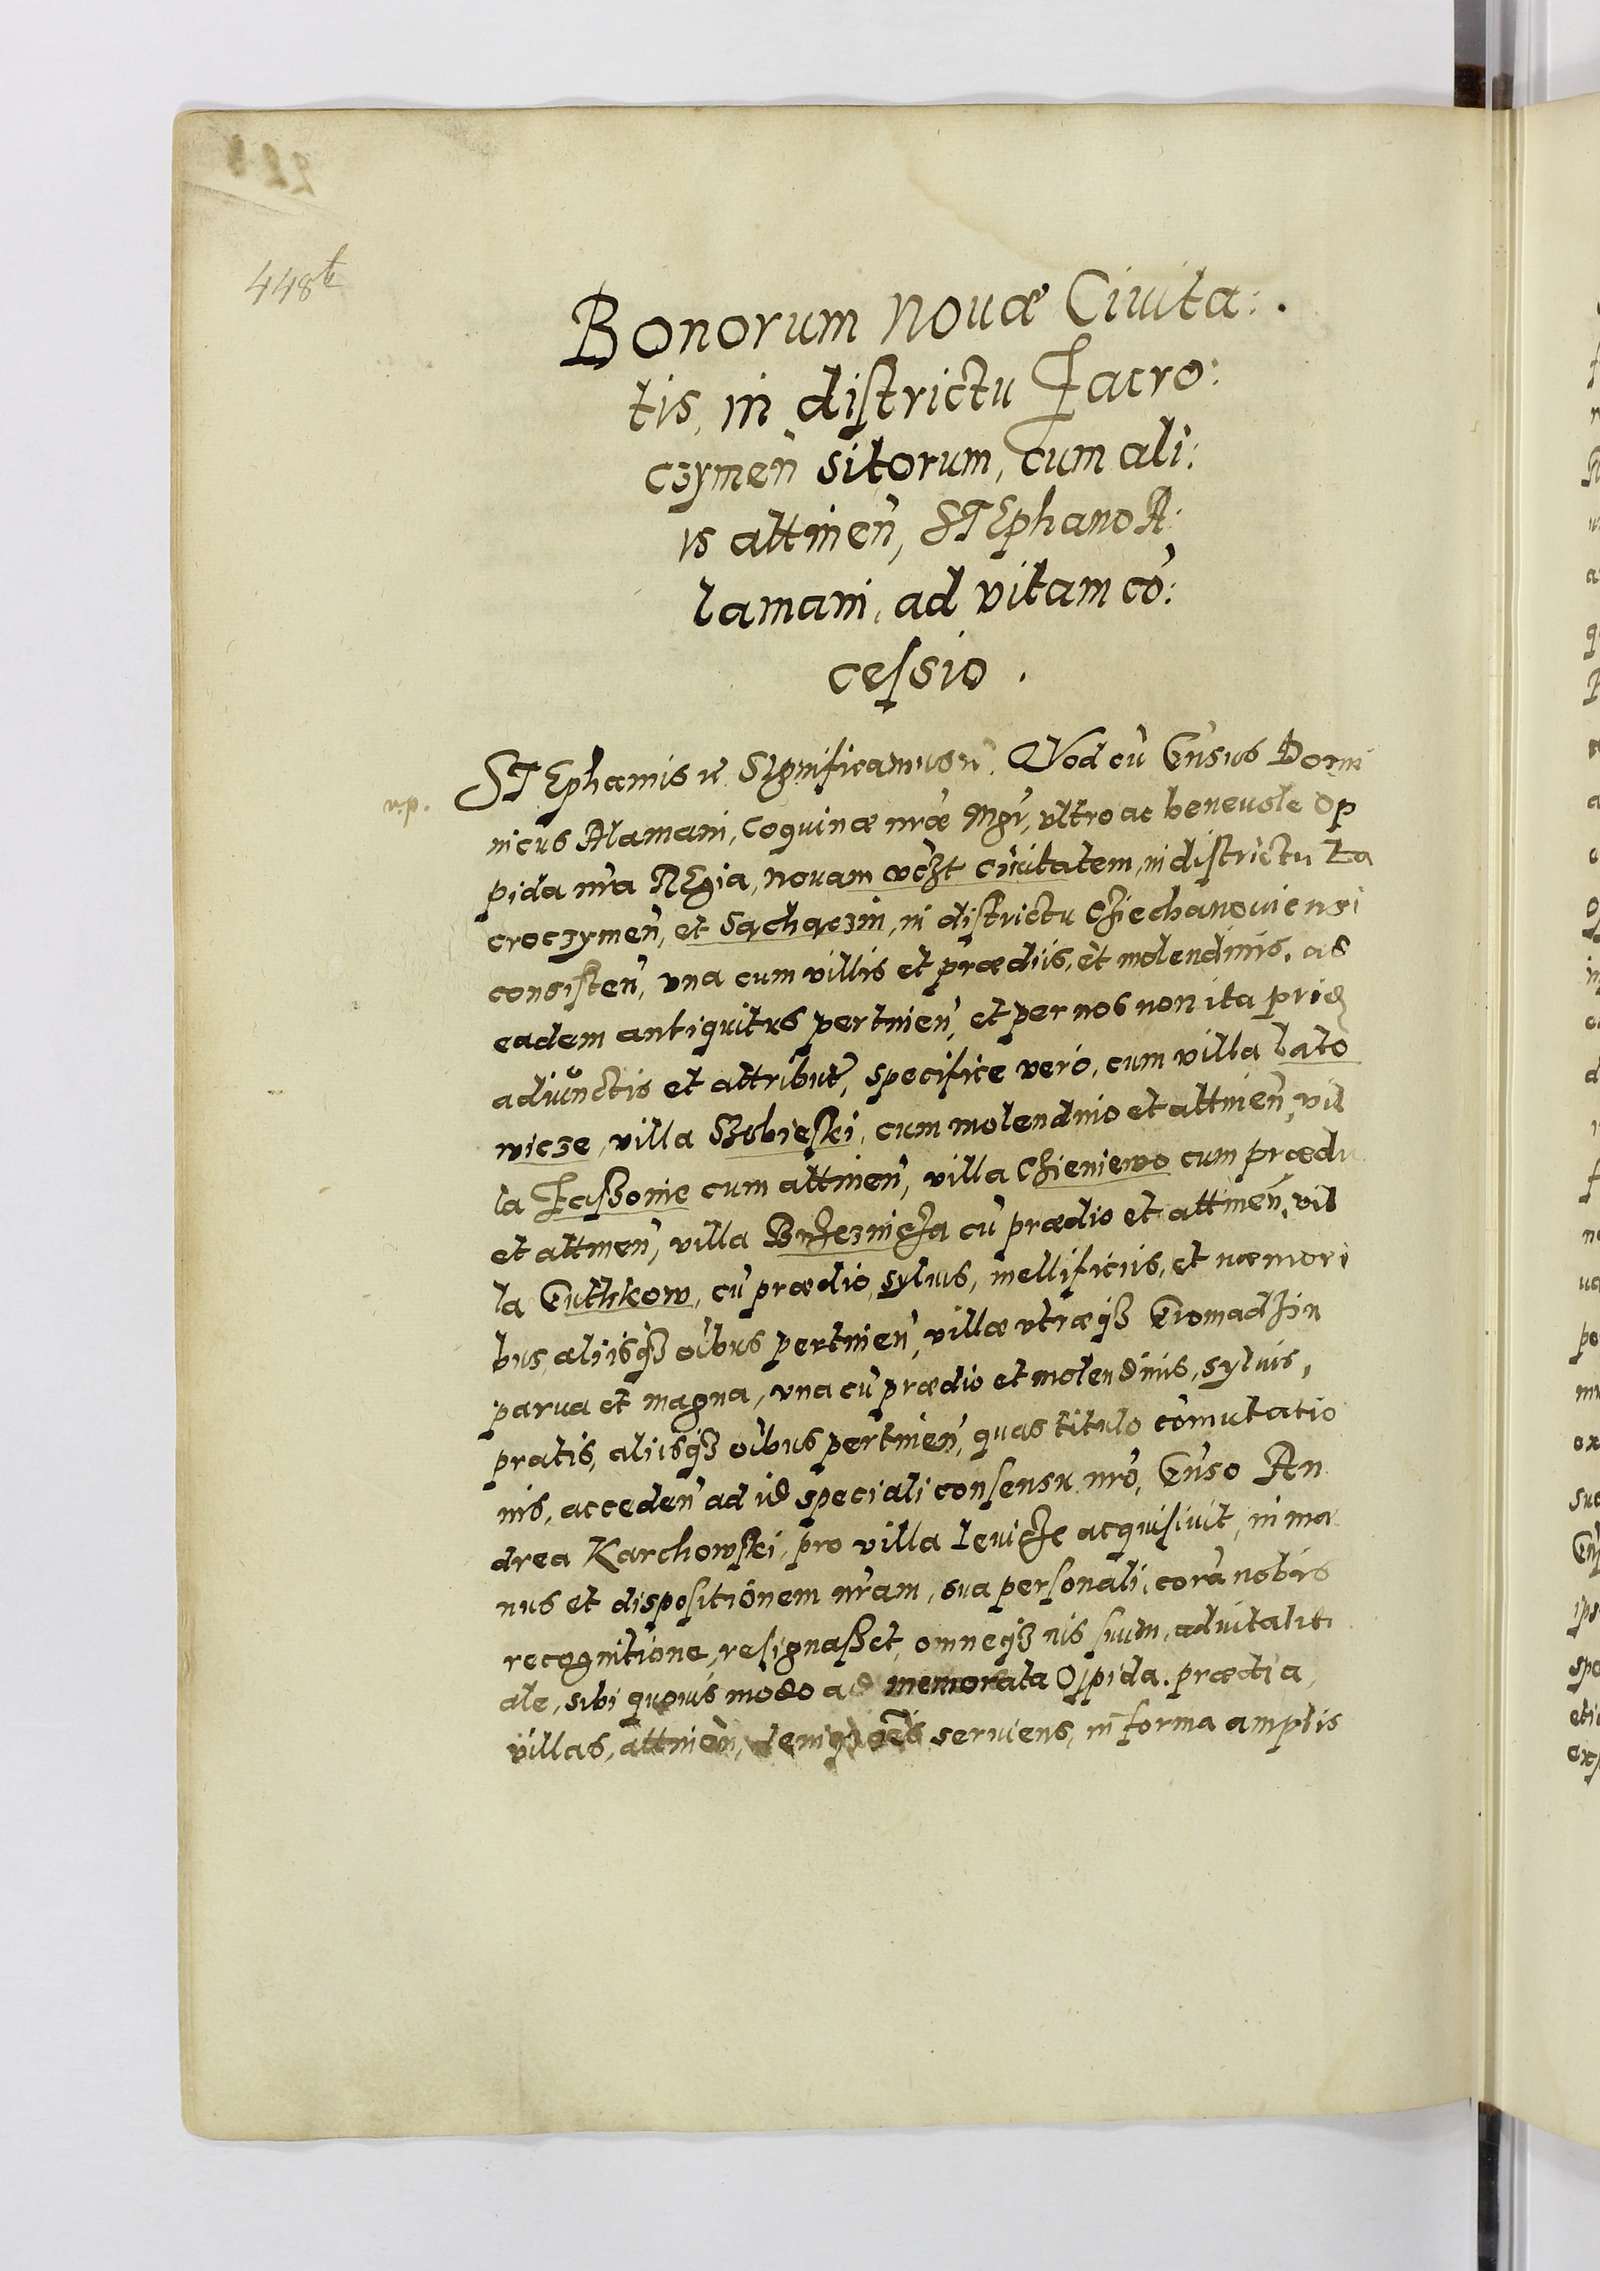 448
Bonorum Nouæ Ciuita:
tis, in districtu Zacro:
czymen̄ sitorum, cum ali:
is attinen̄, STEphano A:
lamani, ad vitam cō:
cessio.
STEphanus Significamus Qvod cū Gn̄sus Domi
nicus Alamani, Coquinæ nr̄æ Mgr̄, vltro ac beneuole op
pida nr̄a REgia, Nouam Ciuitatem, in districtu Za
croczymen̄, et Sąchączin, in districtu Cziechanouiensi
consisten̄, vna cum villis et prædiis, et molendinis, ad
eadem antiquitus pertinen̄, et per nos non ita prid
adiunctis et attribut, specifice vero, cum villa lato
wicze, villa Szobieski, cum molendino et attinen̄, vil
la Zaszonie cum attinen̄, villa Chieniewo cum prædi
et attinen̄, villa cū prædio et attinen̄, vil
la Guthkow, cū prædio, syluis, mellificiis, et næmori
bus, aliisqȝ oībus pertinen̄, villæ vtræqȝ Gromadzin
parua et magna, vna cū prædio et molendinis, syluis,
pratis, aliisqȝ oībus pertinen̄, quas titulo cōmutatio
nis, acceden̄ ad id speciali consensu nr̄o, Gn̄so An
drea Karchowski, pro villa acquisiuit, in ma
nus et dispositionem nr̄am, sua personali, corā nobis
recognitione, resignasset, omneqȝ ius suum, aduitaliti
ale, sibi quouis modo ad memorata Oppida, prædia,
villas, attinen̄, seruiens, in forma amplis